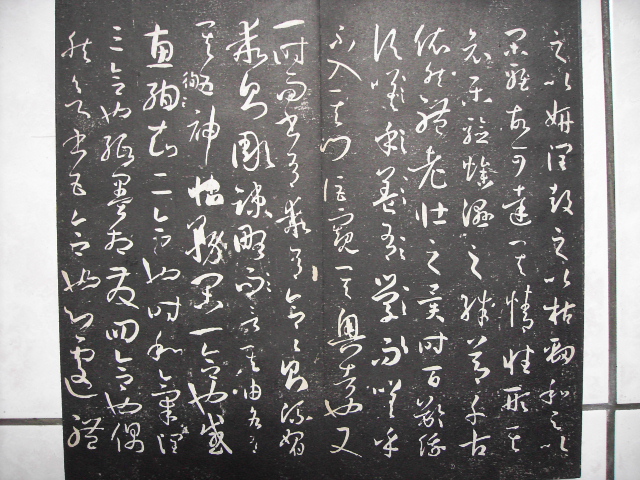 之以妍潤鼓之以枯勁和之以
閑雅故可達其情性形其
哀樂驗燥濕之殊節千古
依然體老壯之異時百齡俄
頃嗟乎
不入其門詎窺其奧者也又
一時而書有乖有合合則流媚
乖則彫疎略言其由各有
其五神怡務閑一合也感
惠徇知二合也時和氣潤
三合也紙墨相發四合也偶
然欲書五合也心遽體